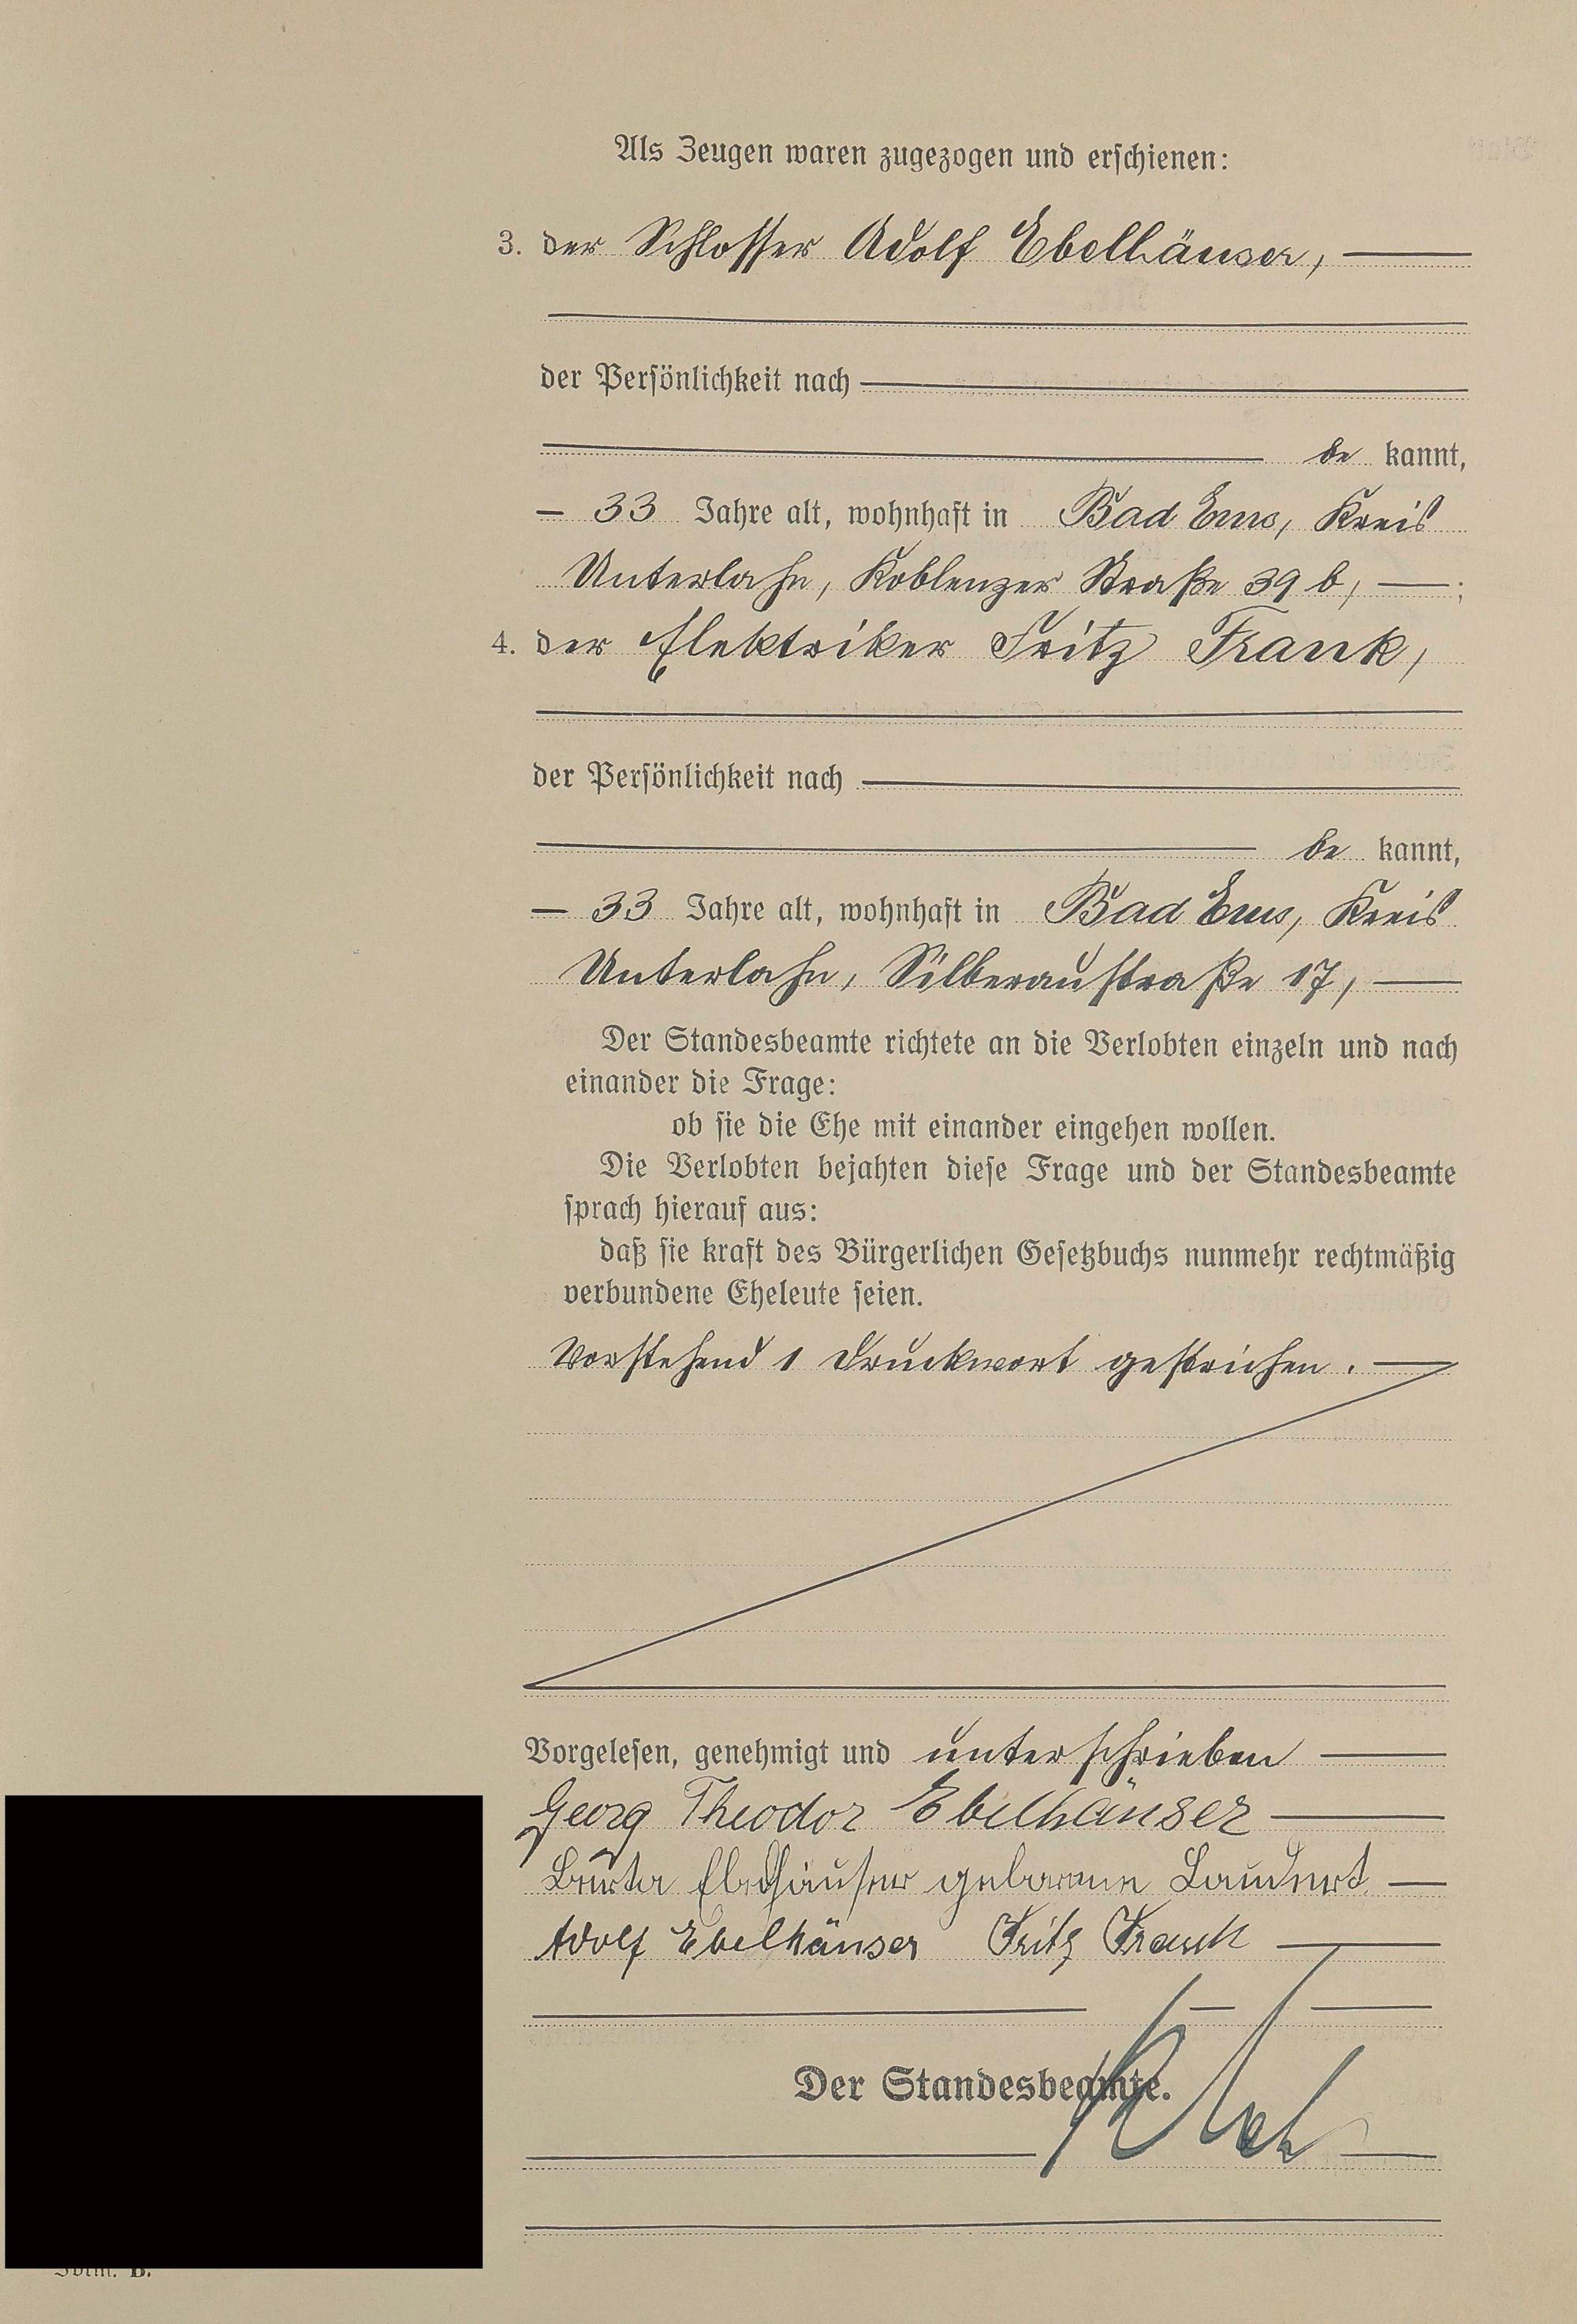 Als Zeugen waren zugezogen und erschienen:
3. der Schlosser Adolf Ebelhäuser,
der Persönlichkeit nach
be kannt,
33 Jahre alt, wohnhaft in Bad Ems, Kreis
Unterlahn, Koblenzer Straße 39 b, ;
4. der Elektriker Fritz Frank,
der Persönlichkeit nach
be kannt,
33 Jahre alt, wohnhaft in Bad Ems, Kreis
Unterlahn, Silberaustraße 17,
Der Standesbeamte richtete an die Verlobten einzeln und nach
einander die Frage:
ob sie die Ehe mit einander eingehen wollen.
Die Verlobten bejahten diese Frage und der Standesbeamte
sprach hierauf aus:
daß sie kraft des Bürgerlichen Gesetzbuchs nunmehr rechtmäßig
verbundene Eheleute seien.
Vorstehend 1 Druckwort gestrichen.
Vorgelesen, genehmigt und unterschrieben
Georg Theodor Ebelhäuser
Berta Ebelhäuser geborene Laudert
Adolf Ebelhäuser Fritz Frank
Der Standesbeamte.
B.